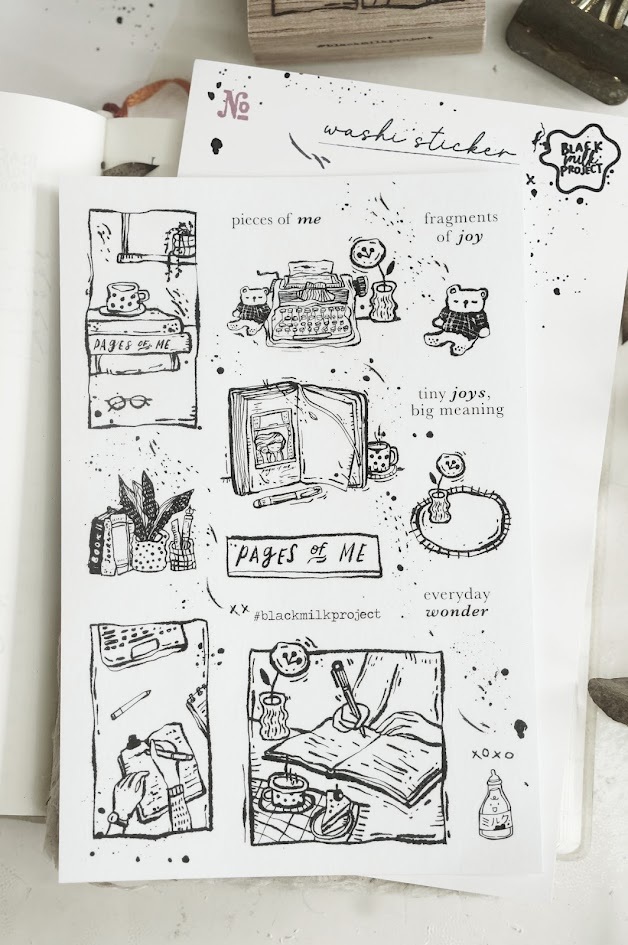 #blackmilkproject
No
washi sticker
BLACK
milk
PROJECT
pieces of me
fragments
of joy
PAGES OF ME
tiny joys,
big meaning
BOOK
PAGES of ME
everyday
wonder
xx #blackmilkproject
xoxo
ミルク